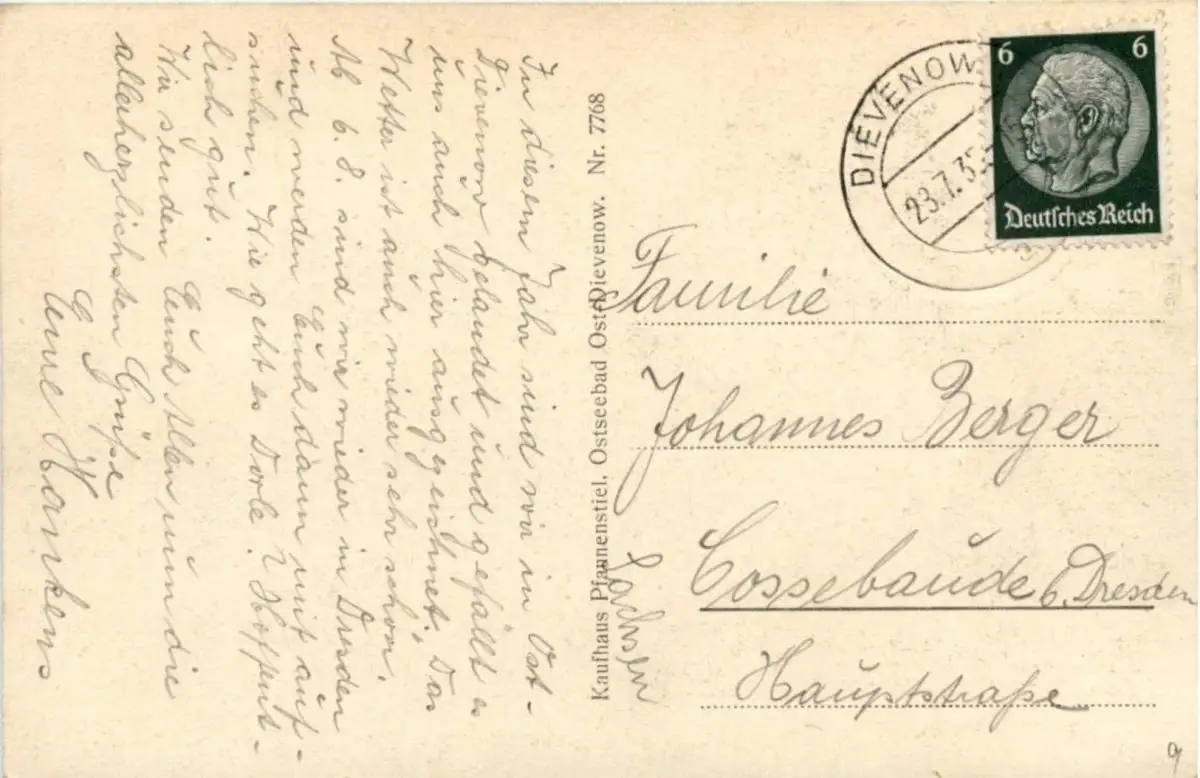 In diesem Jahr sind wir in Ost-
Dievenow gelandet und gefällt es
uns auch hier ausgezeichnet. Das
Wetter ist auch wieder sehr schön.
Ab 6. 8. sind wir wieder in Dresden
und werden Euch dann mit auf-
suchen. Wie geht es Dorle? Hoffent-
lich gut.
Wir senden Euch Allen nun die
allerherzlichsten Grüße
Eure
Kaufhaus Pfannenstiel, Ostseebad Ost-Dievenow. Nr. 7768
DIEVENOW
23.7.35
6 6
Deutsches Reich
Familie
Johannes Berger
Cossebaude b. Dresden
Sachsen
Hauptstraße